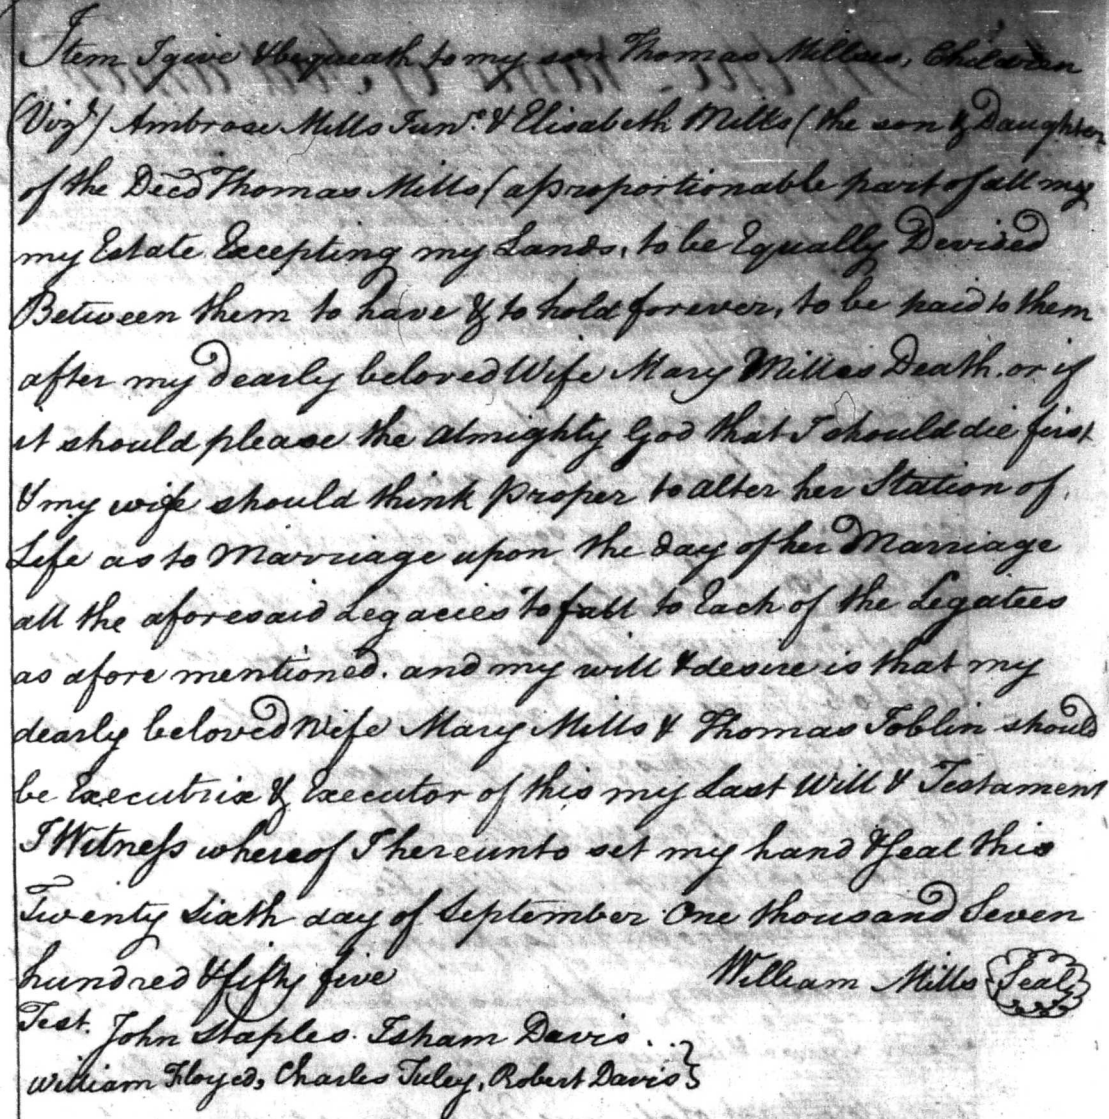 Item I give & bequeath to my son Thomas Millses, Children
(Vizt.) Ambrose Mills Junr. & Elisabeth Mills (the son & Daughter
of the Decd Thomas Mills (a proportionable part of all my
my Estate Excepting my Lands, to be Equally Devided
Between them to have & to hold forever, to be paid to them
after my dearly beloved Wife Mary Millses Death. or if
it should please the almighty God that I should die first
& my wife should think proper to alter her Station of
Life as to Marriage upon the day of her Marriage
all the aforesaid Legacies to fall to Each of the Legatees
as afore mentioned. and my will & desire is that my
dearly beloved Wife Mary Mills & Thomas Joblin should
be Executrix & Executor of this my Last Will & Testament
I Witness whereof I hereunto set my hand & seal this
Twenty Sixth day of September One thousand Seven
hundred & fifty five William Mills Seal
Test. John Staples. Isham Davis..
William Floyed, Charles Tuley, Robert Davis